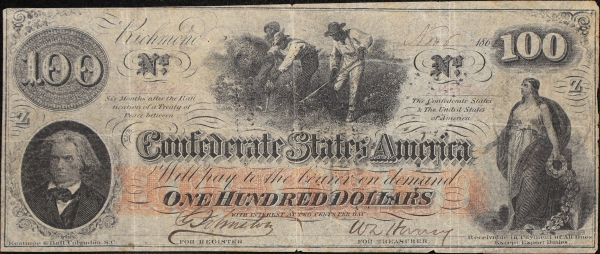 Richmond 186
100
100
No.
No.
Six Months after the Rati
fication of a Treaty of
Peace between
The Confederate States
& The United States
of America
Z
Z
Confederate States of America
Will pay to the bearer on demand
ONE HUNDRED DOLLARS
WITH INTEREST AT TWO CENTS PER DAY
FOR REGISTER
FOR TREASURER
Keatinge & Ball, Columbia, S.C.
Receivable in Payment of All Dues
Except Export Duties